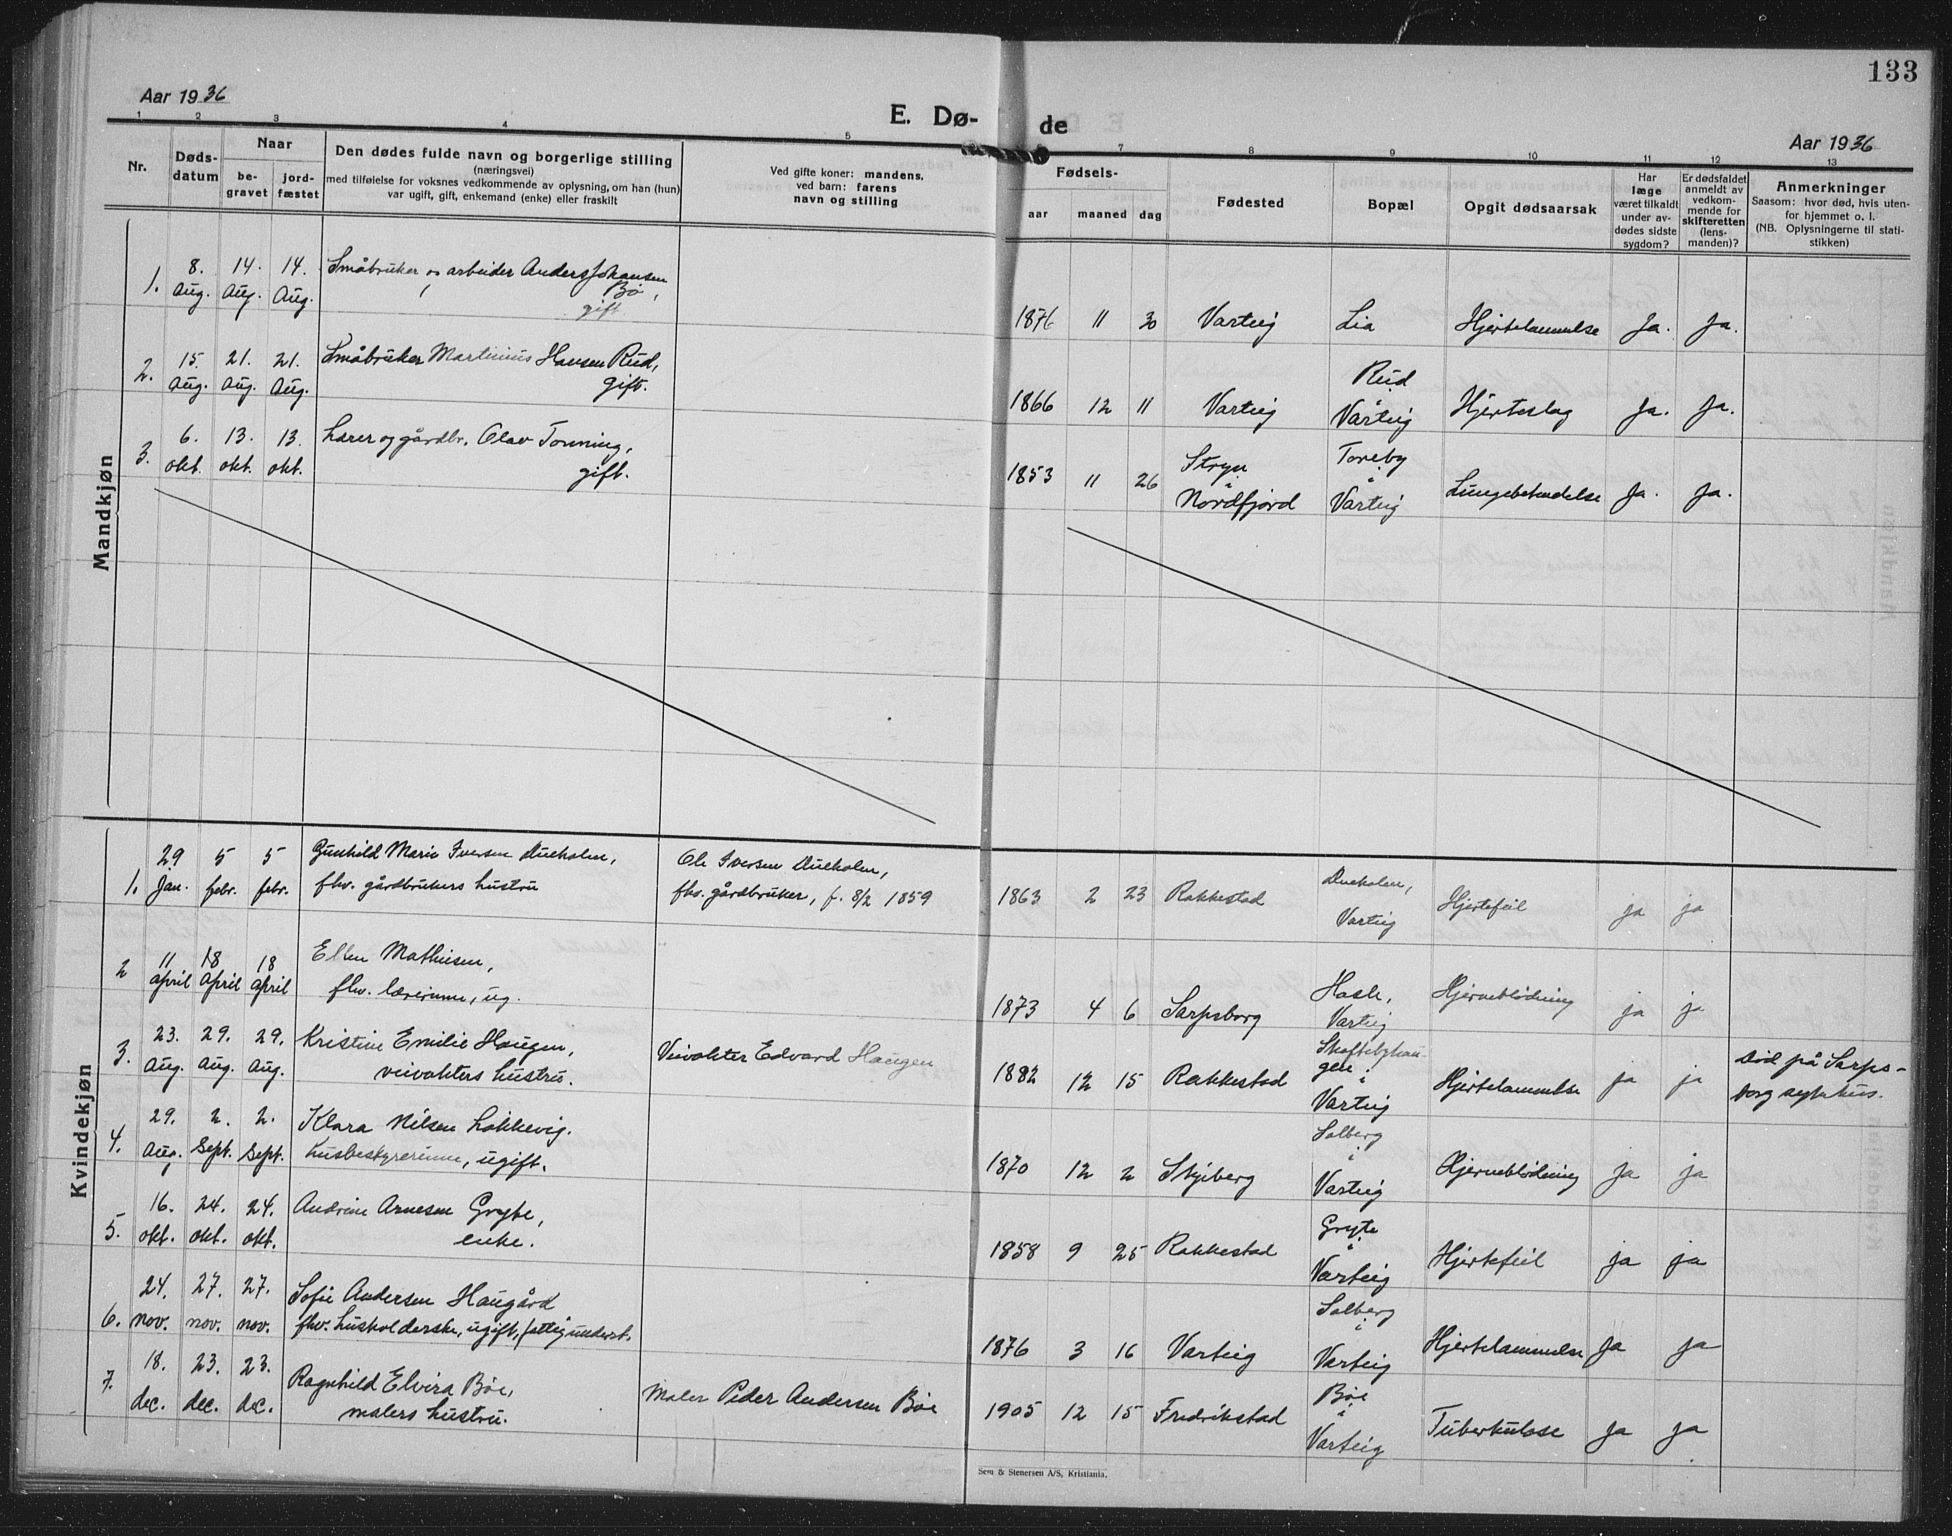 133
Aar 1936
E. Dø-
de
Aar 1936
1 2 3 4 5 7 8 9 10 11 12 13
Nr.
Døds-
datum
Naar
be-
gravet
jord-
fæstet
Den dødes fulde navn og borgerlige stilling
(næringsvei)
med tilføielse for voksnes vedkommende av oplysning, om han (hun)
var ugift, gift, enkemand (enke) eller fraskilt
Ved gifte koner: mandens,
ved barn: farens
navn og stilling
Fødsels-
aar maaned dag
Fødested
Bopæl
Opgit dødsaarsak
Har
læge
været tilkaldt
under av-
dødes sidste
sygdom?
Er dødsfaldet
anmeldt av
vedkom-
mende for
skifteretten
(lens-
manden)?
Anmerkninger
Saasom: hvor død, hvis uten-
for hjemmet o. l.
(NB. Oplysningerne til stati-
stikken)
Mandkjøn
1. 8. Aug. 14. Aug. 14. Aug. Småbruker og arbeider Anders Johansen
Bø,
gift
1876 11 30 Varteig Lia Hjertelammelse Ja. Ja.
2. 15. Aug. 21. Aug. 21. Aug. Småbruker Martinius Hansen Rud,
gift.
1866 12 11 Varteig Rud i Varteig Hjerteslag Ja. Ja.
3. 6. okt. 13. okt. 13. okt. Lærer og gårdbr. Olav Tonning,
gift.
1853 11 26 Stryn i Nordfjord Toreby i Varteig Lungebetendelse Ja. Ja.
Kvindekjøn
1. 29 jan. 5 febr. 5 febr. Gunhild Marie Iversen Dueholen,
fhv. gårdbrukers hustru
Ole Iversen Dueholen,
fhv. gårdbruker, f. 8/2 1859
1863 2 23 Rakkestad Dueholen, Varteig Hjertefeil ja ja
2 11 april 18 april 18 april Ellen Mathiesen,
fhv. lærerinne, ug.
1873 4 6 Sarpsborg Hasle, Varteig Hjerneblödning ja ja
3. 23. Aug. 29. Aug. 29. Aug. Kristine Emilie Haugen,
veivokters hustru.
Veivokter Edvard Haugen
1882 12 15 Rakkestad Skaftebyhau-
gen i
Varteig Hjertelammelse ja ja Död på Sarps-
borg sykehus.
4. 29. Aug. 2. Sept. 2. Sept. Klara Nilsen Løkkevig.
husbestyrerinne, ugift.
1870 12 2 Skjeberg Solberg i Varteig Hjerneblödning ja ja
5. 16. okt. 24. okt. 24. okt. Andrine Arnesen Gryte,
enke.
1858 9 25 Rakkestad Gryte i Varteig Hjertefeil ja ja
6. 24. nov. 27. nov. 27. nov. Sofie Andersen Haugård
fhv. husholderske, ugift, fattigunderst.
1876 3 16 Varteig Solberg i Varteig Hjertelammelse Ja Ja
7. 18. dec. 23. dec. 23. dec. Ragnhild Elvira Bøe,
malers hustru.
Maler Peder Andersen Bøe
1905 12 15 Fredrikstad Bøe i Varteig Tuberkulose ja ja
Sem & Stenersen A/S, Kristiania.